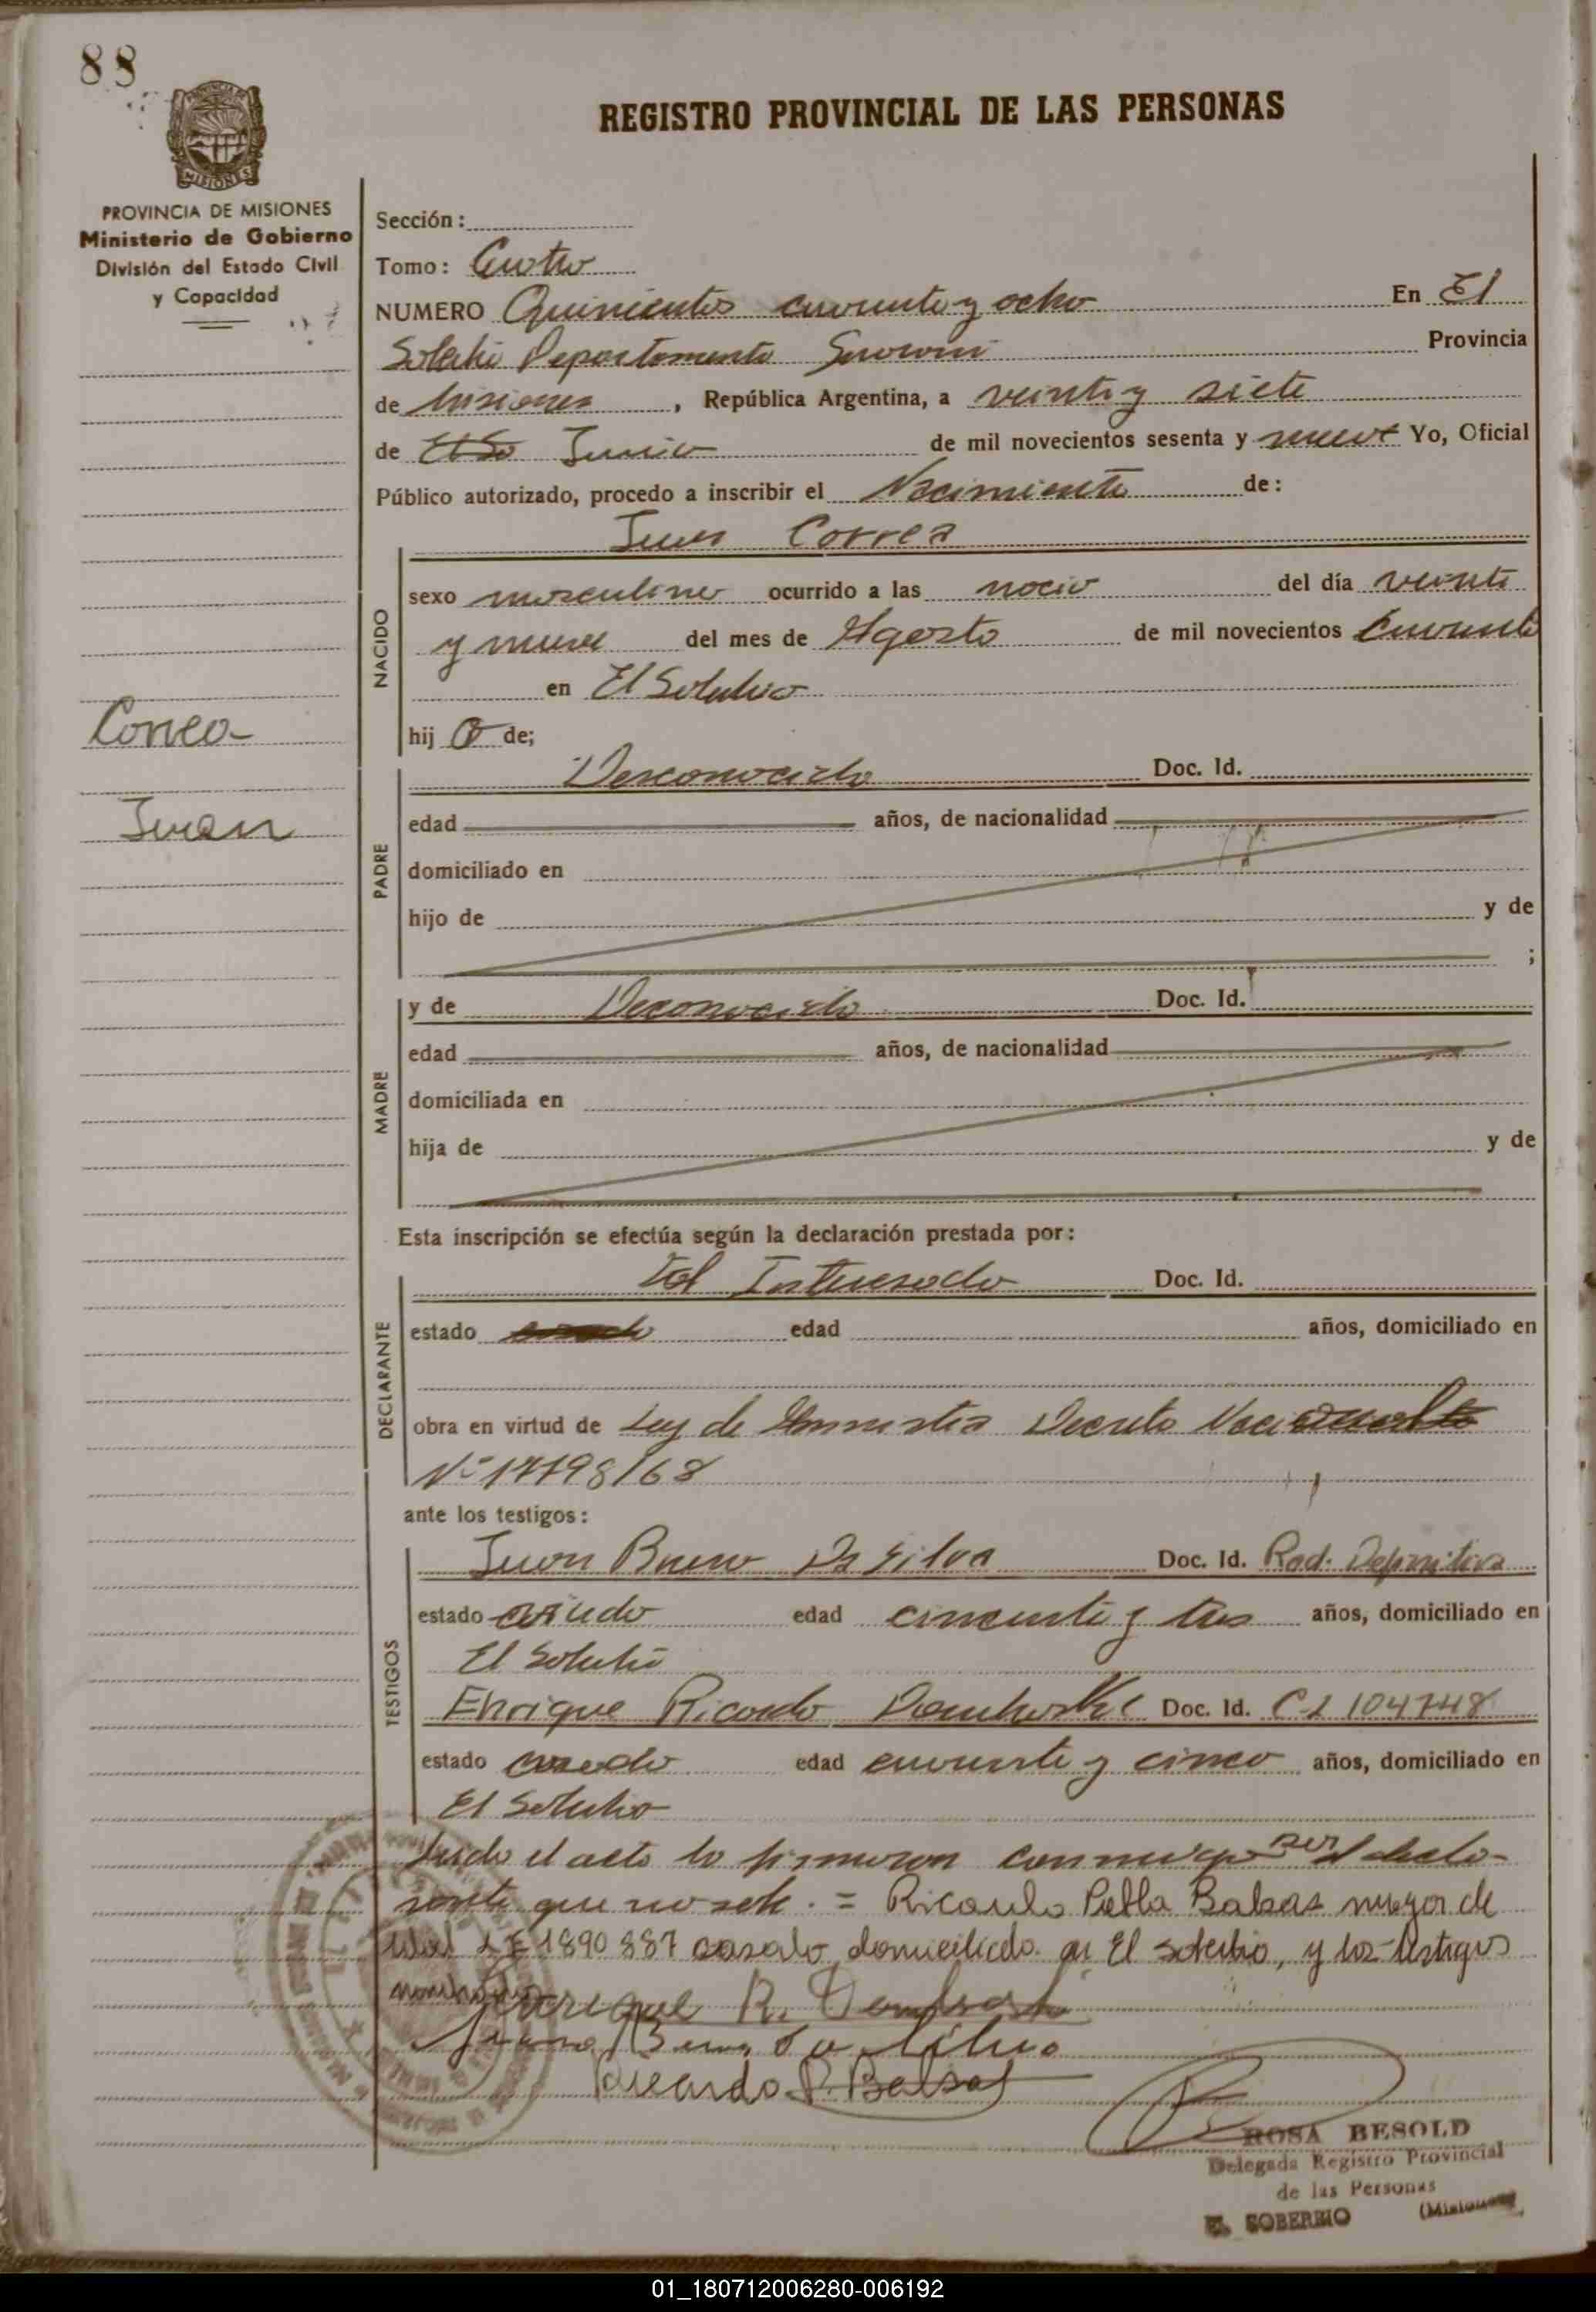 88
REGISTRO PROVINCIAL DE LAS PERSONAS
MISIONES
PROVINCIA DE MISIONES
Ministerio de Gobierno
División del Estado Civil
y Capacidad
Sección:
Tomo: Cuatro
NUMERO Quinientos cuarenta y ocho En El
Soberbio Departamento Guarani Provincia
de Misiones, República Argentina, a veinte y siete
de Junio de mil novecientos sesenta y nueve Yo, Oficial
Público autorizado, procedo a inscribir el Nacimiento de:
Juan Correa
NACIDO
sexo masculino ocurrido a las del día veinte
y nueve del mes de Agosto de mil novecientos Cuarenta
en El Soberbio
hij o de;
Correa
Juan
PADRE
Desconocido Doc. Id.
edad años, de nacionalidad
domiciliado en
hijo de y de
;
MADRE
y de Deconocido Doc. Id.
edad años, de nacionalidad
domiciliada en
hija de y de
Esta inscripción se efectúa según la declaración prestada por:
DECLARANTE
Interesado Doc. Id.
estado edad años, domiciliado en
obra en virtud de Ley de Amnistia Decreto
Nº 17798/68
ante los testigos:
TESTIGOS
Juan Bueno Da Silva Doc. Id. Rad. Definitiva
estado edad cincuenta y tres años, domiciliado en
El Soberbio
Enrique Ricardo Doc. Id. C I 104748
estado casado edad cuarenta y cinco años, domiciliado en
El Soberbio
Leido el acto lo firmaron conmigo
que no sabe. = Ricardo Balsas mayor de
edad L E 1890887 casado, domiciliado en El Soberbio, y los testigos
Enrique R.
Bueno da Silva
Ricardo P. Balsas
ROSA BESOLD
Delegada Registro Provincial
de las Personas
EL SOBERBIO (Misiones)
01_180712006280-006192